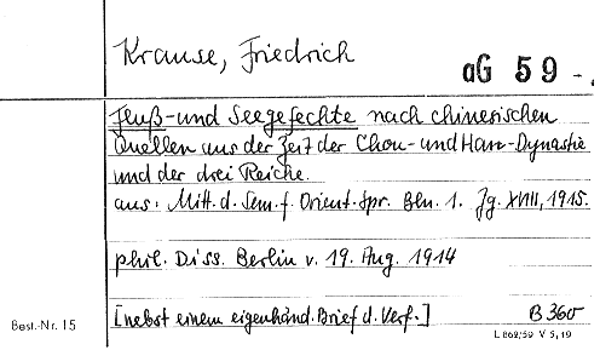 Krause, Friedrich
aG 59 -
Fluß- und Seegefechte nach chinesischen
Quellen aus der Zeit der Chou- und Han-Dynastie
und der drei Reiche.
aus: Mitt. d. Sem. f. Orient. Spr. Bln. 1. Jg. XVIII, 1915.
phil. Diss. Berlin v. 19. Aug. 1914
[nebst einem eigenhänd. Brief d. Verf.] B 360
Best.-Nr. 15
L 862/59 V 5, 19